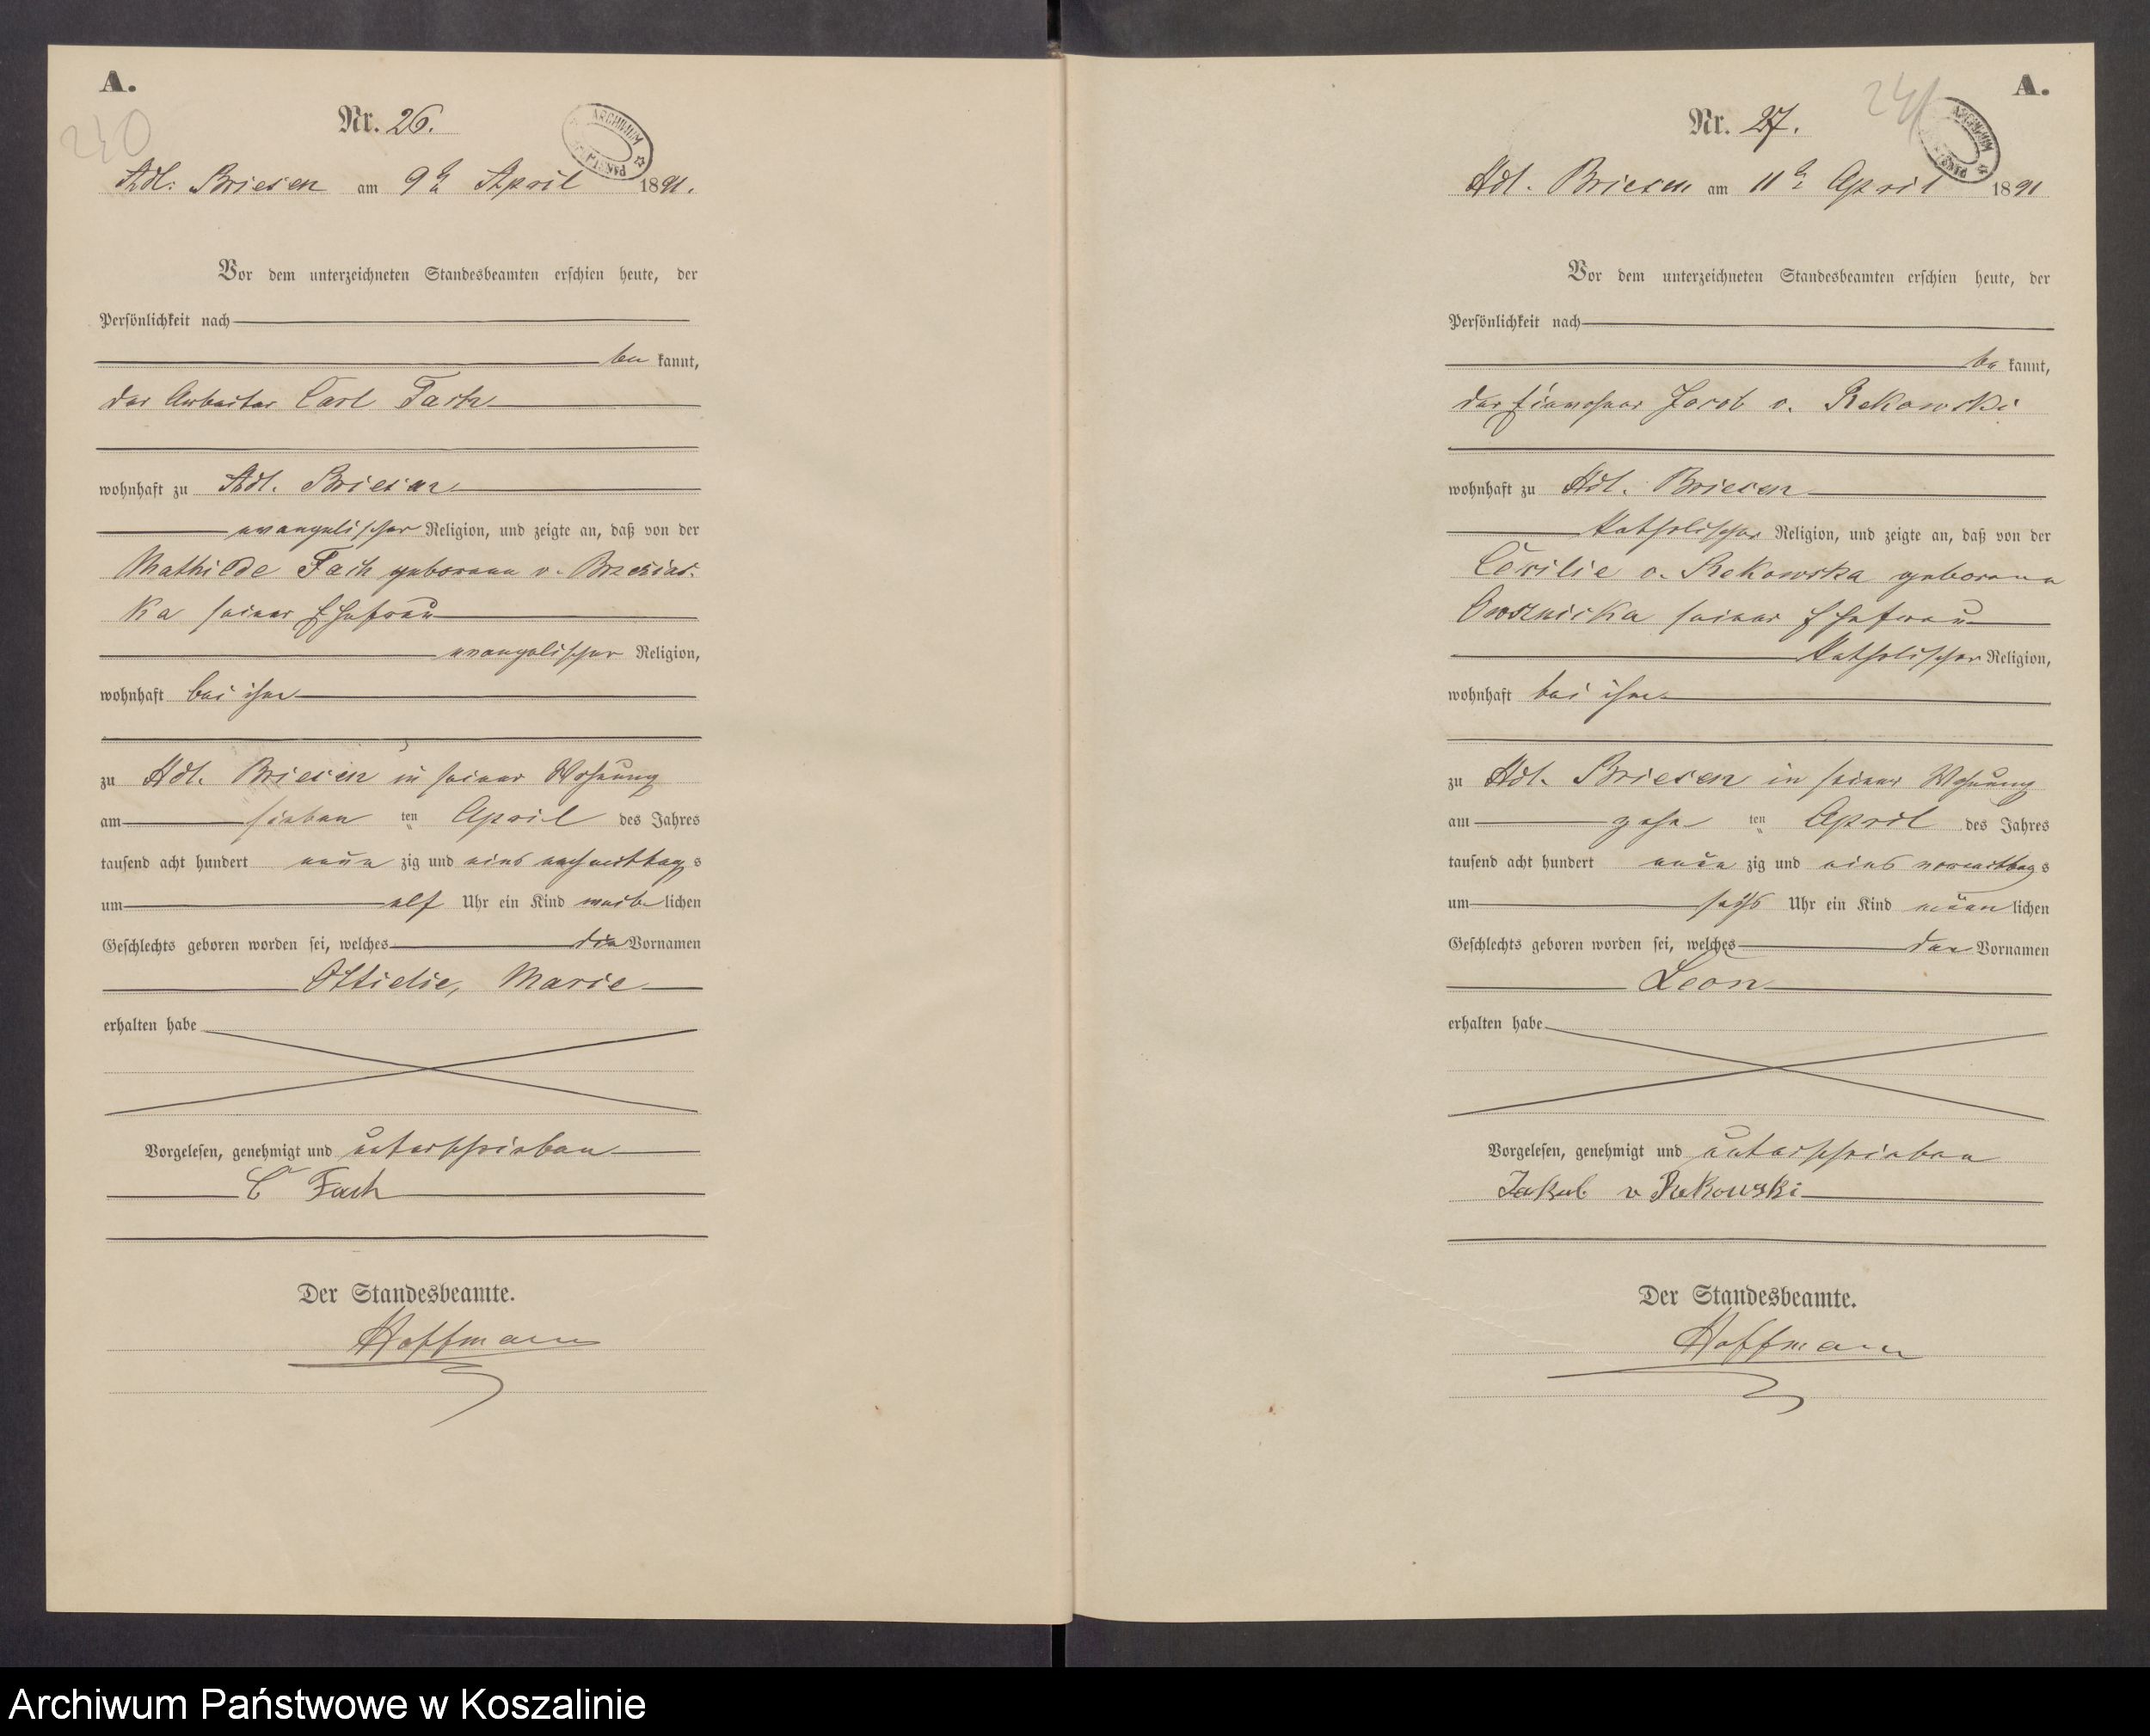 A.
240
Nr. 26.
ARCHIWUM
Adl. Briesen am 9ten April 1891.
Vor dem unterzeichneten Standesbeamten erschien heute, der
Persönlichkeit nach
be kannt,
der Arbeiter Carl Fach
wohnhaft zu Adl. Briesen
evangelischer Religion, und zeigte an, daß von der
Mathilde Fach geborene v. Brzesins-
ka seiner Ehefrau
evangelischer Religion,
wohnhaft bei ihm
zu Adl. Briesen in seiner Wohnung
am sieben ten April des Jahres
tausend acht hundert neun zig und eins nachmittags
um elf Uhr ein Kind weib lichen
Geschlechts geboren worden sei, welches die Vornamen
Ottielie, Marie
erhalten habe
Vorgelesen, genehmigt und unterschrieben
C Fach
Der Standesbeamte.
Hoffmann
A.
241
Nr. 27.
ARCHIWUM
Adl. Briesen am 11ten April 1891
Vor dem unterzeichneten Standesbeamten erschien heute, der
Persönlichkeit nach
be kannt,
der Einwohner Jacob v. Rekowski
wohnhaft zu Adl. Briesen
katholischer Religion, und zeigte an, daß von der
Cecilie v. Rekowska geborene
seiner Ehefrau
katholischer Religion,
wohnhaft bei ihm
zu Adl. Briesen in seiner Wohnung
am zehn ten April des Jahres
tausend acht hundert neun zig und eins vormittags
um sechs Uhr ein Kind männ lichen
Geschlechts geboren worden sei, welches den Vornamen
Leon
erhalten habe
Vorgelesen, genehmigt und unterschrieben
Jakub v Rekowski
Der Standesbeamte.
Hoffmann
Archiwum Państwowe w Koszalinie